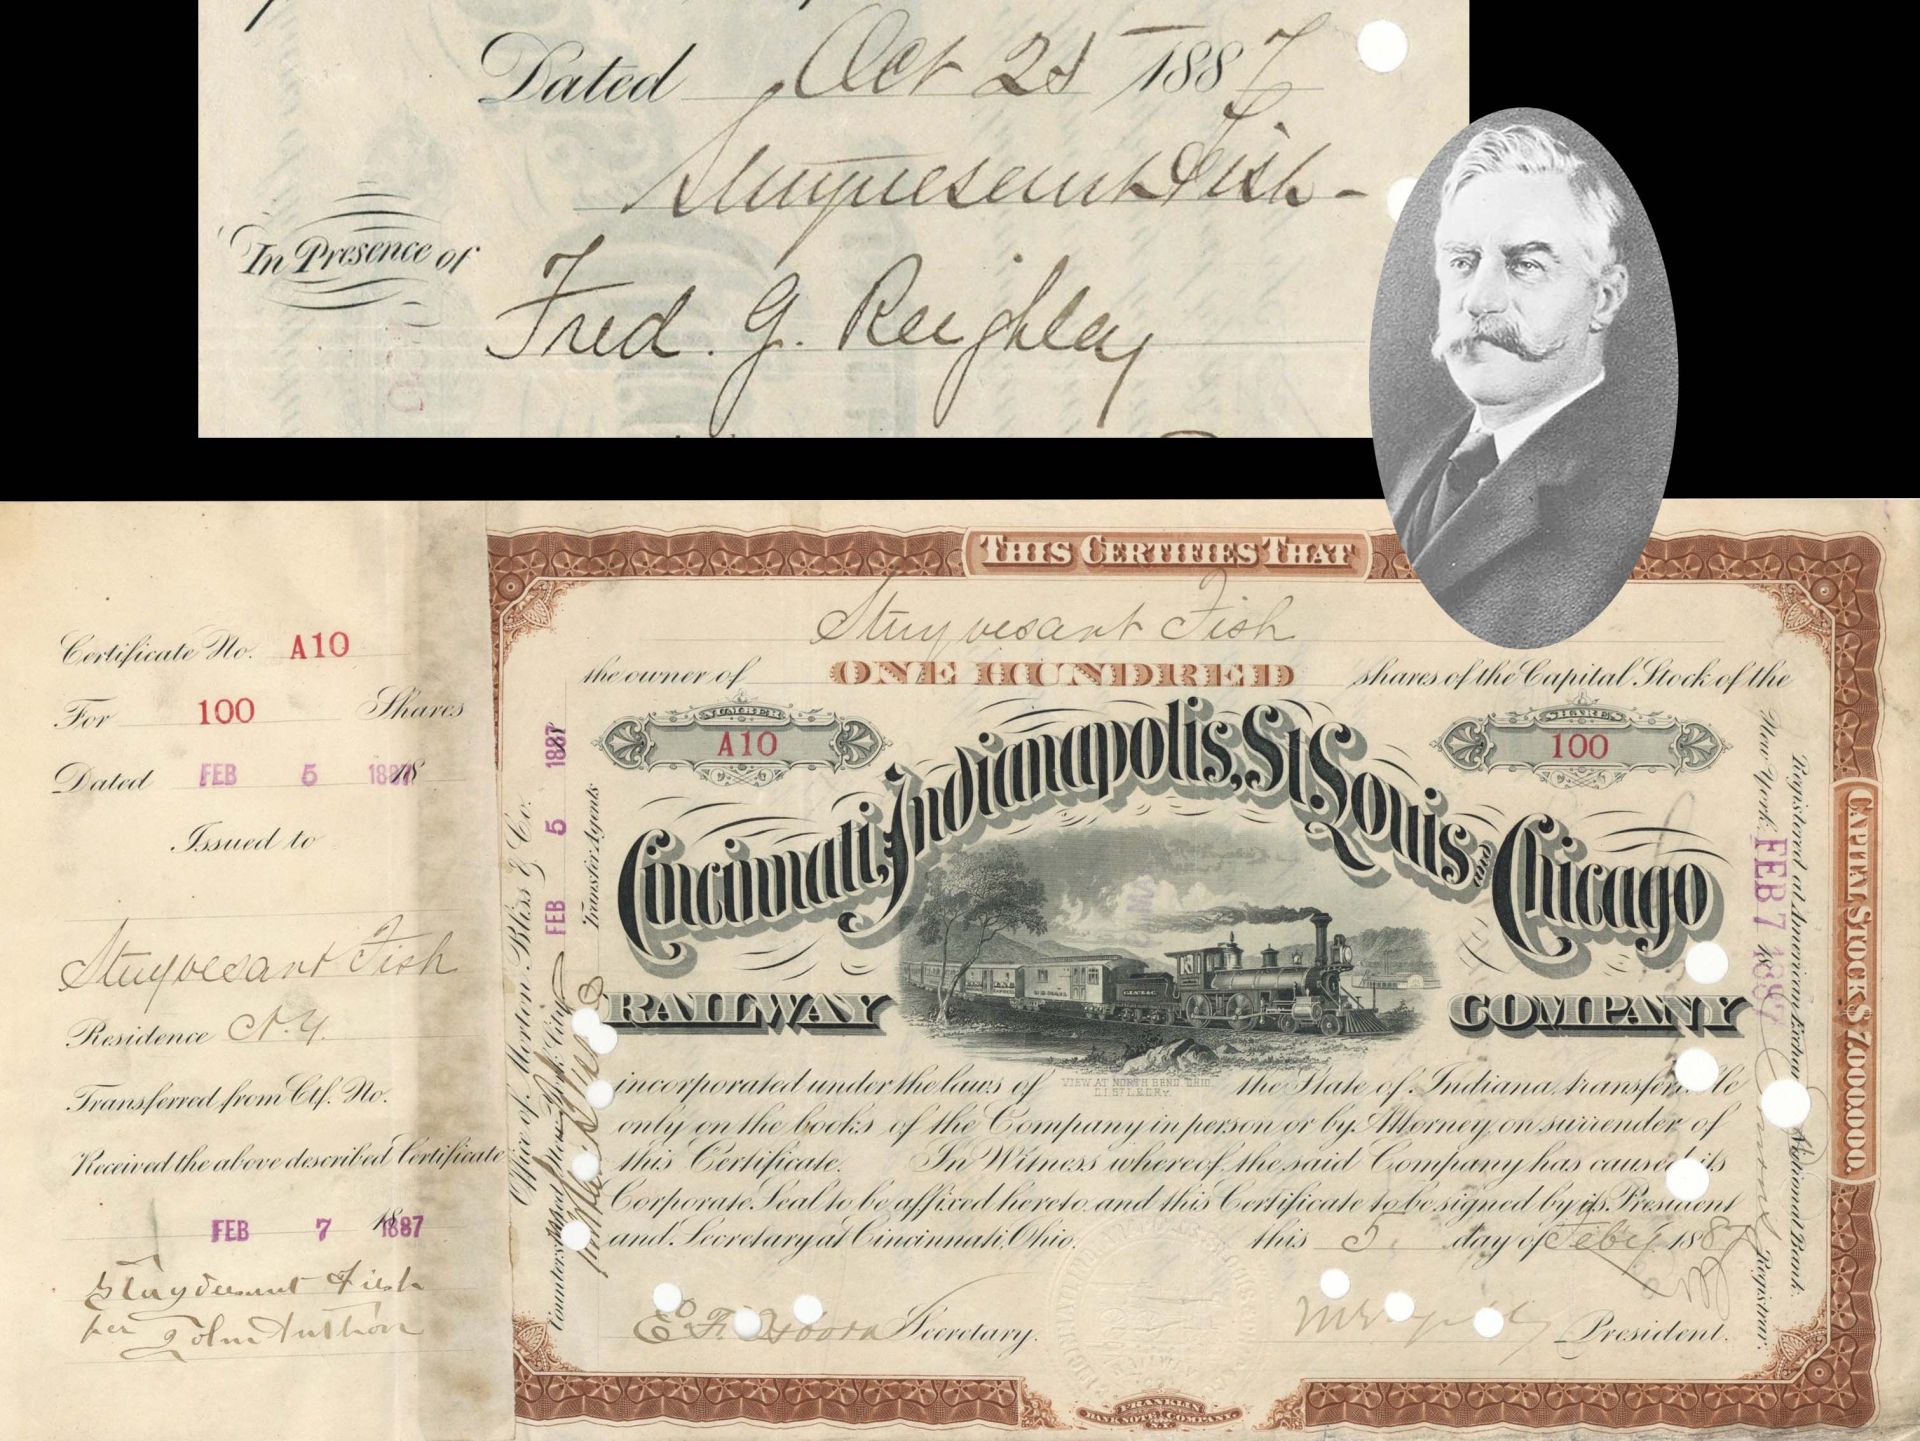 Dated Oct 25 1887
Stuyvesant Fish -
In Presence of
Fred. G. Reighley
Certificate No. A10
For 100 Shares
Dated FEB 5 1887 18
Issued to
Stuyvesant Fish
Residence N.Y.
Transferred from Ctf. No.
Received the above described Certificate
FEB 7 1887 18
Stuyvesant Fish
per John Anthon
Office of Morton, Bliss & Co.
Countersigned New York City FEB 5 1887
Transfer Agents
THIS CERTIFIES THAT
Stuyvesant Fish
the owner of ONE HUNDRED shares of the Capital Stock of the
NUMBER
A10
SHARES
100
Cincinnati, Indianapolis, St Louis and Chicago
RAILWAY COMPANY
VIEW AT NORTH BEND, OHIO.
C.I. ST. L. & C. RY.
incorporated under the laws of the State of Indiana, transferable
only on the books of the Company in person or by Attorney, on surrender of
this Certificate. In Witness whereof, the said Company has caused its
Corporate Seal to be affixed hereto and this Certificate to be signed by its President
and Secretary at Cincinnati, Ohio. this 5 day of Feb'y 1887
Secretary.
President.
Registered at American Exchange National Bank.
New York, FEB 7 1887 18
Registrar.
CAPITAL STOCK $7,000,000.
FRANKLIN
BANK NOTE COMPANY.
N.Y.